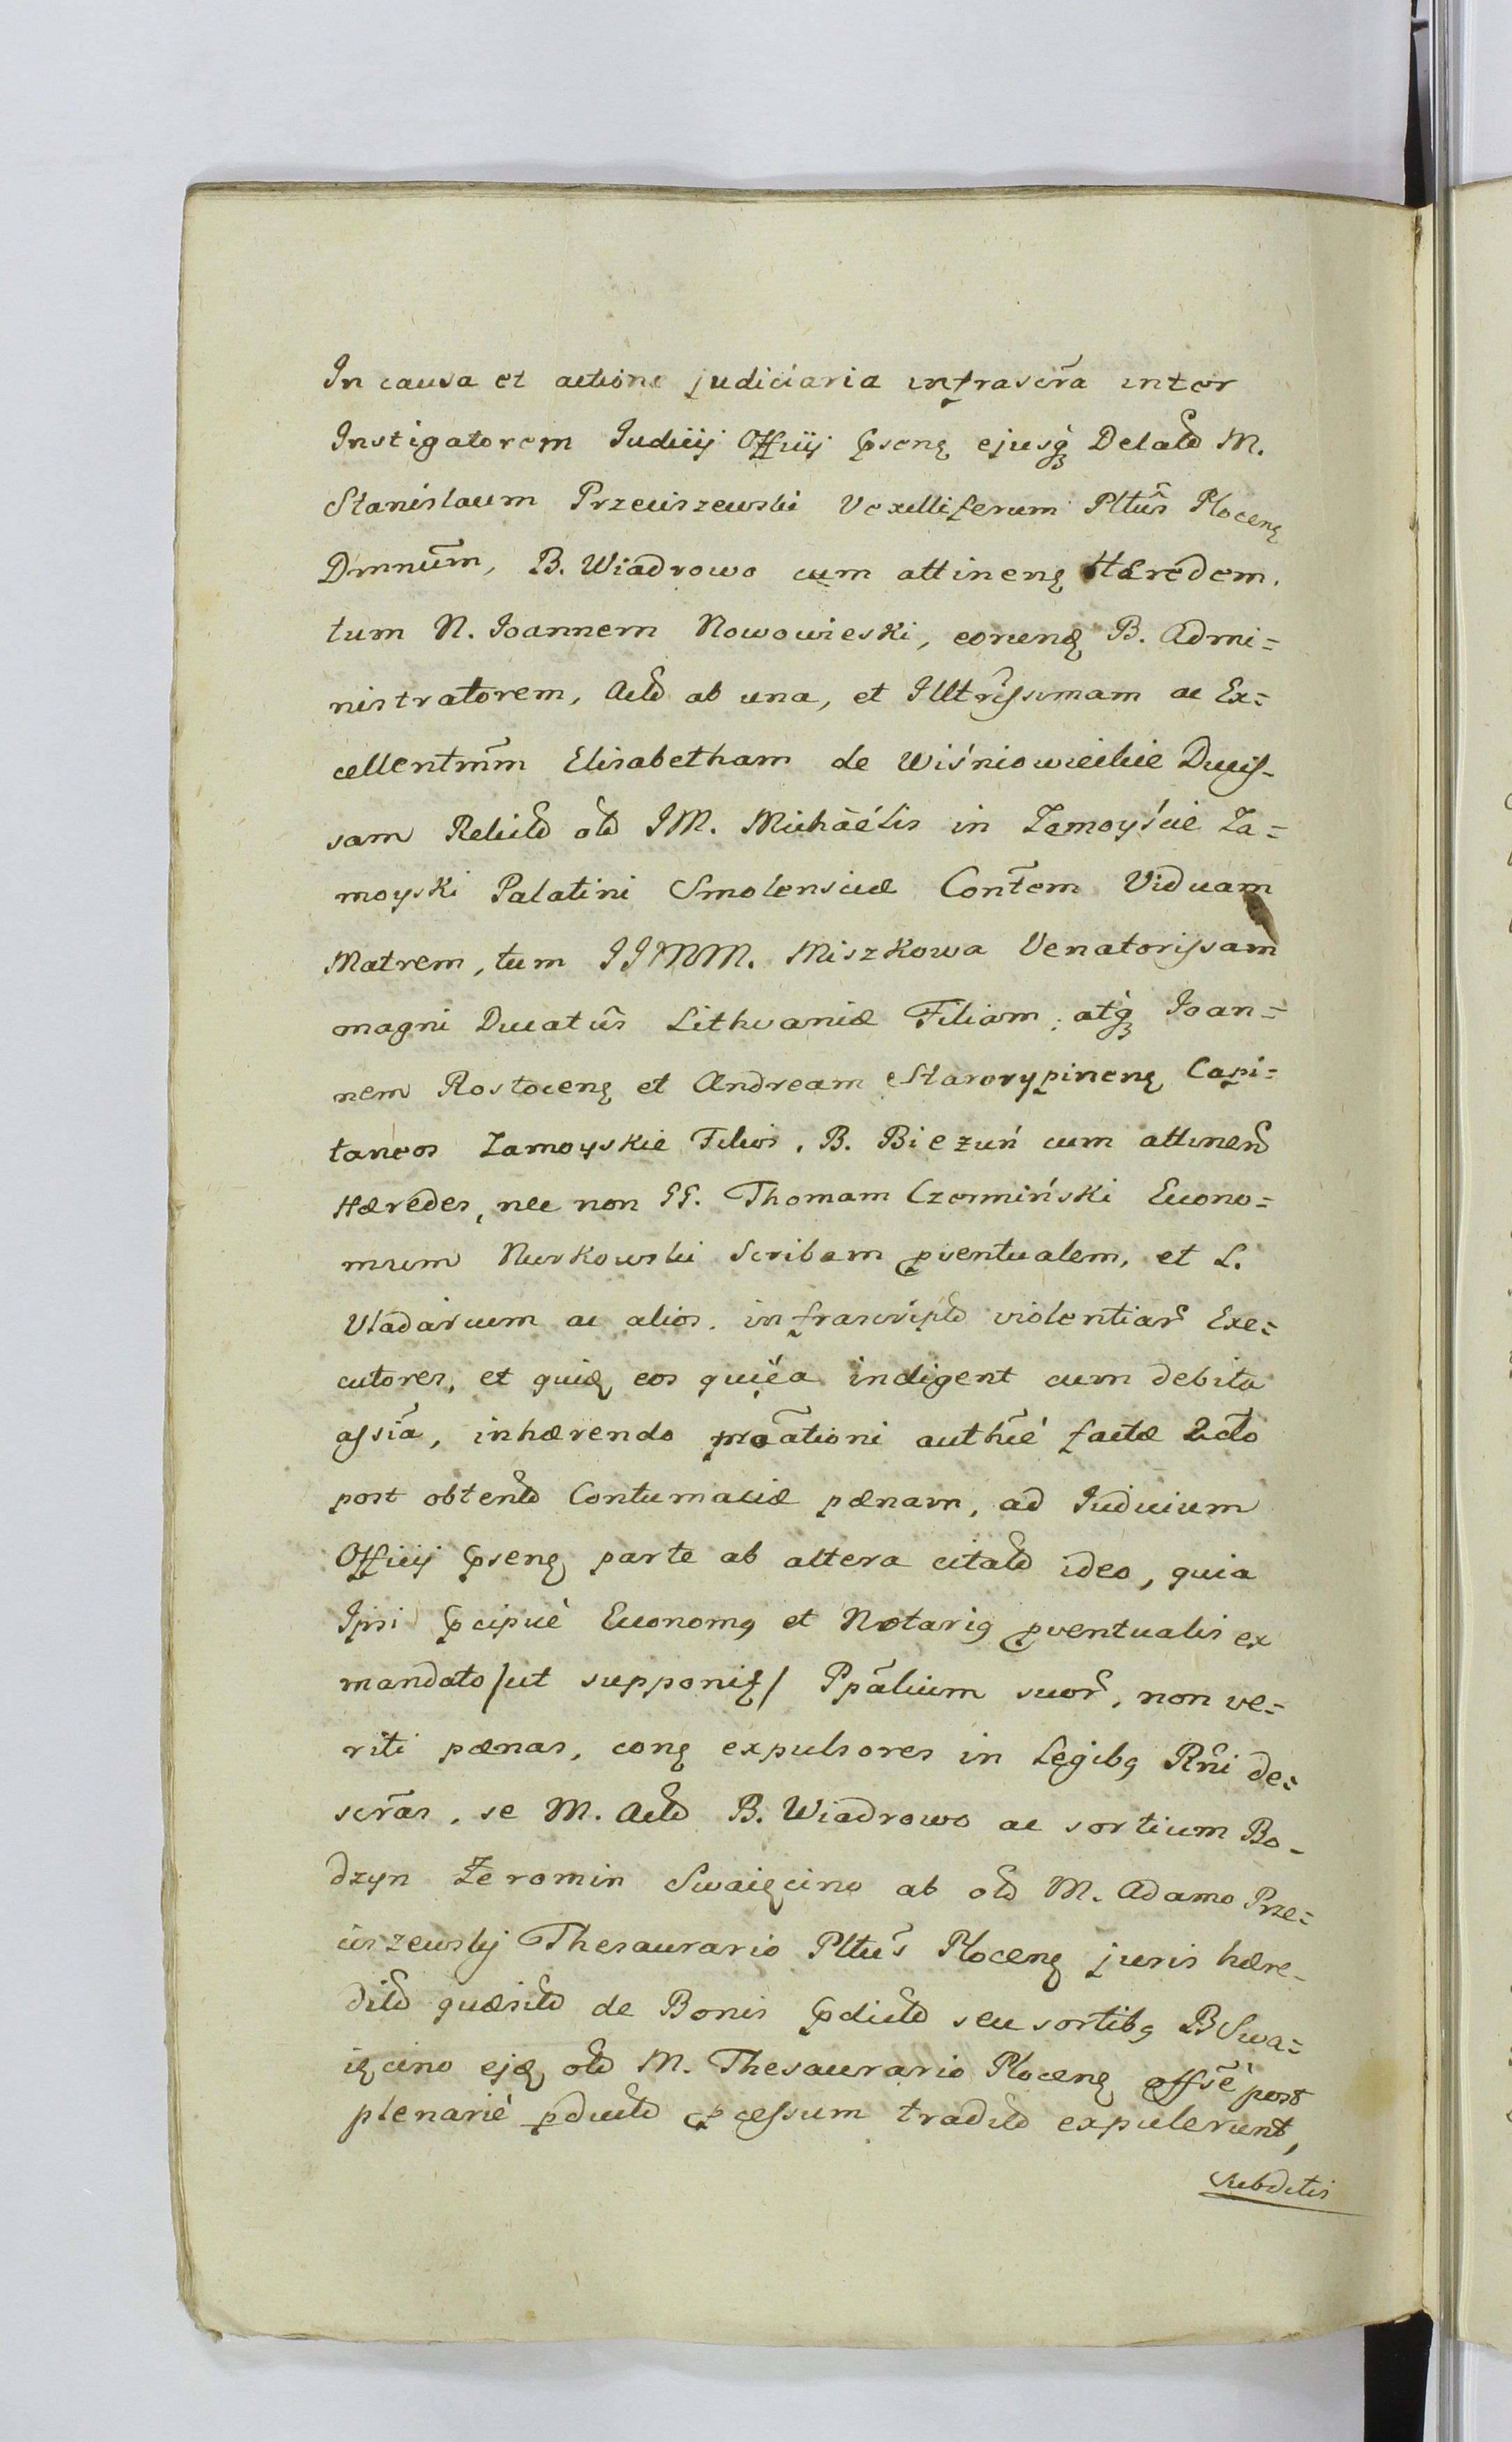 In causa et actione judiciaria infrascr̃a inter
Instigatorem Iudicij Officij pseñ ejusq̃ Delato M.
Stanislaum Przeciszewski Vexilliferum Pltũs Plocen
Dmnum̃, B. Wiadrowo cum attinen Hæredem,
tum N. Ioannem Nowowieski, eorund B. Admi=
nistratorem, Acto ab una, et Illtrissimam ac Ex=
cellentmm̃ Elisabetham de Wiśniowieckie Ducis-
sam Relicto olo IM. Michaëlis in Zamoyście Za=
moyski Palatini Smolensciæ Cont̃em Viduam
Matrem, tum IIMM. Miszkowa Venatorissam
magni Ducatûs Lithvaniæ Filiam, atq̃ Ioan=
nem Rostocen et Andream Starorypinen Capi=
taneos Zamoyskie Filios, B. Bieżuń cum attinen
Hæredes, nec non GG. Thomam Czermiński Econo=
mum Nurkowski Scribam pventualem, et L.
Vladarium ac alios, infrascripto violentiar Exe=
cutores, et quid eos quiéa indigent cum debita
assĩa, inhærendo pr̃oãtioni authẽ factæ 2cto
post obtento Contumaciæ pænam, ad Iudicium
Officij psen parte ab altera citato ideo, quia
Ipsi pcipuè Economg et Notarig pventualis ex
mandato /ut supponit/ Ppãlium suor, non ve=
riti pænas, con expulsores in Legibg Rñi de=
scr̃as, se M. Acto B. Wiadrowo ac sortium Bo-
dzyn Żeromin Swaięcino ab olo M. Adamo Prze=
ciszewskj Thesaurario Pltũs Plocen juris hære-
dito quæsito de Bonis pdicto seu sortibg B Swa=
ięcino ejd olo M. Thesaurario Plocen offsẽ post
plenariè pducto pcessum tradito expulerunt,
subditis